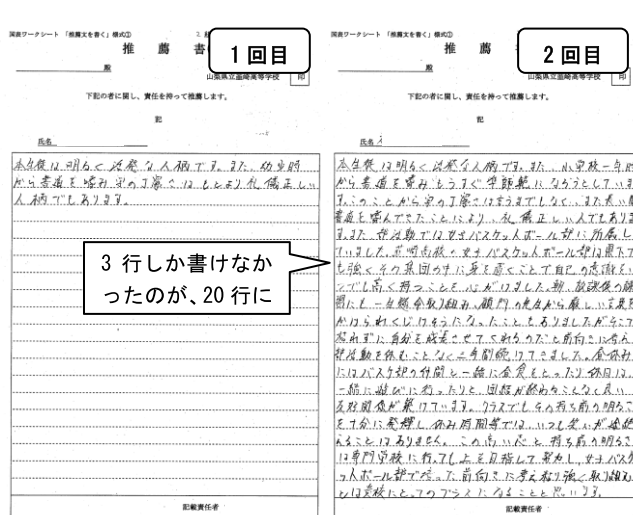 国語ワークシート 「推薦文を書く」様式①
推 薦 書
1回目
殿
山梨県立韮崎高等学校
印
下記の者に関し、責任を持って推薦します。
記
氏名
本生徒は明るく活発な人柄です。また、幼少時
から書道を嗜み字の丁寧さはもとより礼儀正しい
人柄でもあります。
記載責任者
3行しか書けなか
ったのが、20行に
国語ワークシート 「推薦文を書く」様式①
推 薦
2回目
殿
山梨県立韮崎高等学校
印
下記の者に関し、責任を持って推薦します。
記
氏名
本生徒は明るく活発な人柄です。また、小学校一年時
から書道を嗜みもうすぐ準師範になろうとしていま
す。このことから字の丁寧さは言うまでもなく、また長い間
書道を嗜んできたことにより、礼儀正しい人でもありま
す。また、部活動では女子バスケットボール部に所属し
ていました。韮崎高校の女子バスケットボール部は県下で
も強くその集団の中に身を置くことで自己の意識を
高く持つことを心がけました。朝、放課後の練
習にも一生懸命取り組み、顧問の先生から厳しい言葉を
かけられくじけそうになったこともありましたがそこで
恐れずに自分を成長させてくれるのだと前向きに考え
部活動を休むことなく三年間続けてきました。昼休み
にはバスケ部の仲間と一緒に会食をとったり休日は、
一緒に遊びに行ったりと団結が終わることなく良い
友好関係が築けています。クラスでもその持ち前の明るさ
を十分に発揮し休み時間等では、いつも笑いが途絶
えることはありません。この高い志と持ち前の明るさ
は専門学校に行っても上を目指して努力し、女子バスケ
ットボール部で培った前向きに考え粘り強く取り組む
とは貴校にとってのプラスになることと思います。
記載責任者